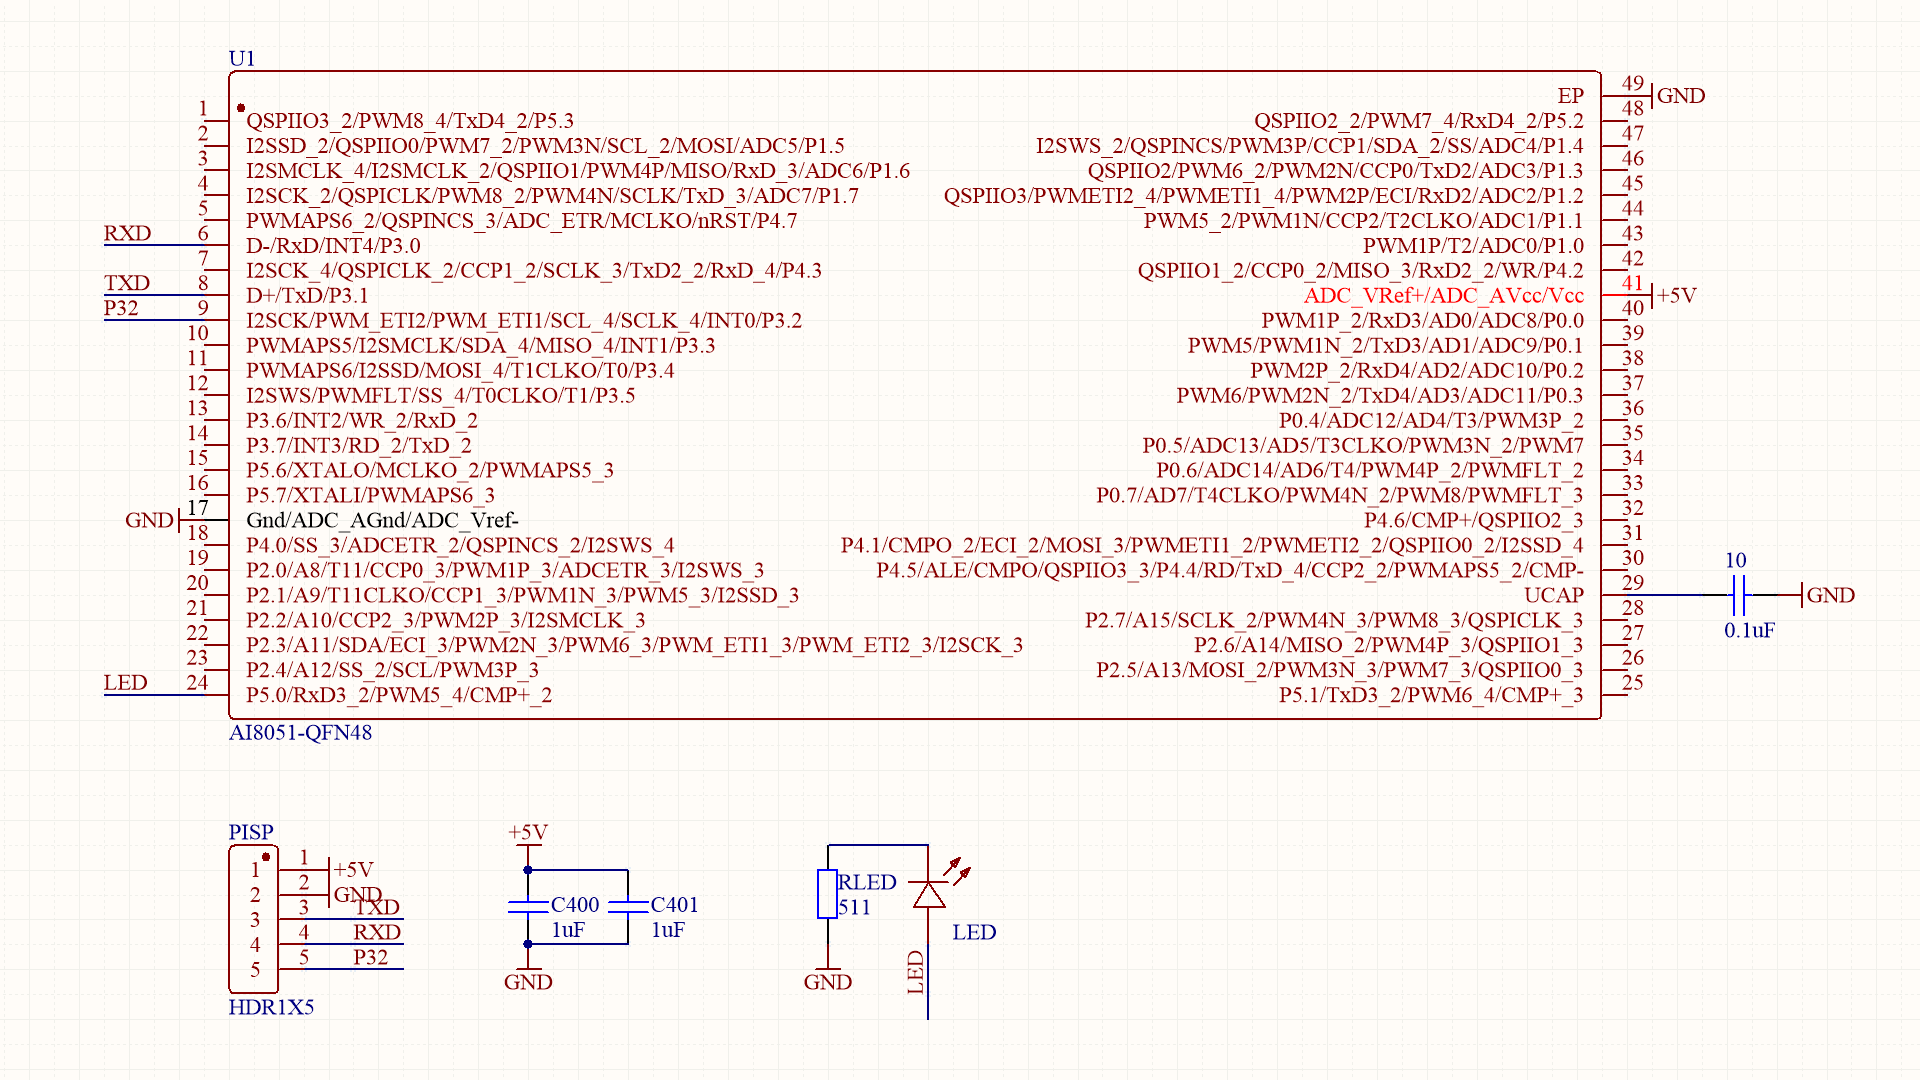 U1
1 QSPIIO3_2/PWM8_4/TxD4_2/P5.3
2 I2SSD_2/QSPIIO0/PWM7_2/PWM3N/SCL_2/MOSI/ADC5/P1.5
3 I2SMCLK_4/I2SMCLK_2/QSPIIO1/PWM4P/MISO/RxD_3/ADC6/P1.6
4 I2SCK_2/QSPICLK/PWM8_2/PWM4N/SCLK/TxD_3/ADC7/P1.7
5 PWMAPS6_2/QSPINCS_3/ADC_ETR/MCLKO/nRST/P4.7
RXD 6 D-/RxD/INT4/P3.0
7 I2SCK_4/QSPICLK_2/CCP1_2/SCLK_3/TxD2_2/RxD_4/P4.3
TXD 8 D+/TxD/P3.1
P32 9 I2SCK/PWM_ETI2/PWM_ETI1/SCL_4/SCLK_4/INT0/P3.2
10 PWMAPS5/I2SMCLK/SDA_4/MISO_4/INT1/P3.3
11 PWMAPS6/I2SSD/MOSI_4/T1CLKO/T0/P3.4
12 I2SWS/PWMFLT/SS_4/T0CLKO/T1/P3.5
13 P3.6/INT2/WR_2/RxD_2
14 P3.7/INT3/RD_2/TxD_2
15 P5.6/XTALO/MCLKO_2/PWMAPS5_3
16 P5.7/XTALI/PWMAPS6_3
GND 17 Gnd/ADC_AGnd/ADC_Vref-
18 P4.0/SS_3/ADCETR_2/QSPINCS_2/I2SWS_4
19 P2.0/A8/T11/CCP0_3/PWM1P_3/ADCETR_3/I2SWS_3
20 P2.1/A9/T11CLKO/CCP1_3/PWM1N_3/PWM5_3/I2SSD_3
21 P2.2/A10/CCP2_3/PWM2P_3/I2SMCLK_3
22 P2.3/A11/SDA/ECI_3/PWM2N_3/PWM6_3/PWM_ETI1_3/PWM_ETI2_3/I2SCK_3
23 P2.4/A12/SS_2/SCL/PWM3P_3
LED 24 P5.0/RxD3_2/PWM5_4/CMP+_2
EP 49 GND
QSPIIO2_2/PWM7_4/RxD4_2/P5.2 48
I2SWS_2/QSPINCS/PWM3P/CCP1/SDA_2/SS/ADC4/P1.4 47
QSPIIO2/PWM6_2/PWM2N/CCP0/TxD2/ADC3/P1.3 46
QSPIIO3/PWMETI2_4/PWMETI1_4/PWM2P/ECI/RxD2/ADC2/P1.2 45
PWM5_2/PWM1N/CCP2/T2CLKO/ADC1/P1.1 44
PWM1P/T2/ADC0/P1.0 43
QSPIIO1_2/CCP0_2/MISO_3/RxD2_2/WR/P4.2 42
ADC_VRef+/ADC_AVcc/Vcc 41 +5V
PWM1P_2/RxD3/AD0/ADC8/P0.0 40
PWM5/PWM1N_2/TxD3/AD1/ADC9/P0.1 39
PWM2P_2/RxD4/AD2/ADC10/P0.2 38
PWM6/PWM2N_2/TxD4/AD3/ADC11/P0.3 37
P0.4/ADC12/AD4/T3/PWM3P_2 36
P0.5/ADC13/AD5/T3CLKO/PWM3N_2/PWM7 35
P0.6/ADC14/AD6/T4/PWM4P_2/PWMFLT_2 34
P0.7/AD7/T4CLKO/PWM4N_2/PWM8/PWMFLT_3 33
P4.6/CMP+/QSPIIO2_3 32
P4.1/CMPO_2/ECI_2/MOSI_3/PWMETI1_2/PWMETI2_2/QSPIIO0_2/I2SSD_4 31
P4.5/ALE/CMPO/QSPIIO3_3/P4.4/RD/TxD_4/CCP2_2/PWMAPS5_2/CMP- 30
UCAP 29 10 0.1uF GND
P2.7/A15/SCLK_2/PWM4N_3/PWM8_3/QSPICLK_3 28
P2.6/A14/MISO_2/PWM4P_3/QSPIIO1_3 27
P2.5/A13/MOSI_2/PWM3N_3/PWM7_3/QSPIIO0_3 26
P5.1/TxD3_2/PWM6_4/CMP+_3 25
AI8051-QFN48
PISP
1 1 +5V
2 2 GND
3 3 TXD
4 4 RXD
5 5 P32
HDR1X5
+5V
C400 C401
1uF 1uF
GND
RLED
511
GND
LED
LED